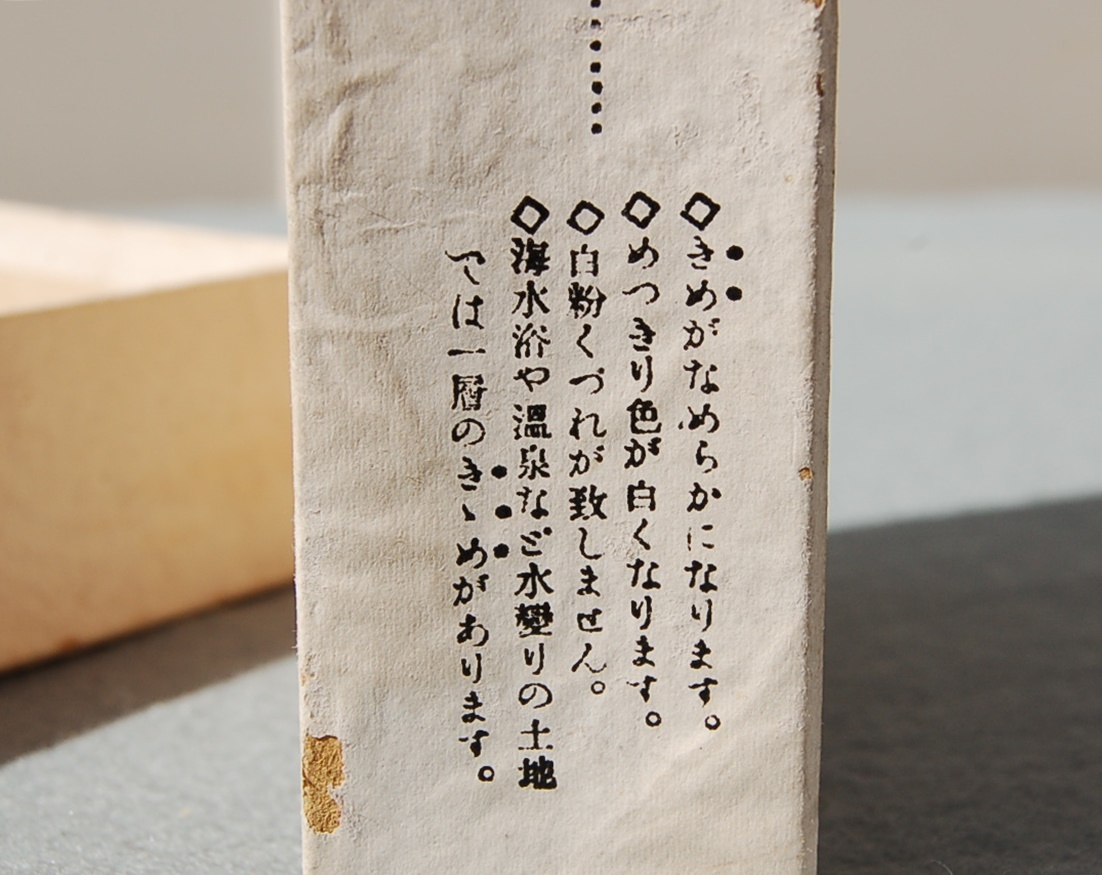 ◇きめがなめらかになります。
◇めつきり色が白くなります。
◇白粉くづれが致しません。
◇海水浴や温泉など水變りの土地
では一層のきゝめがあります。